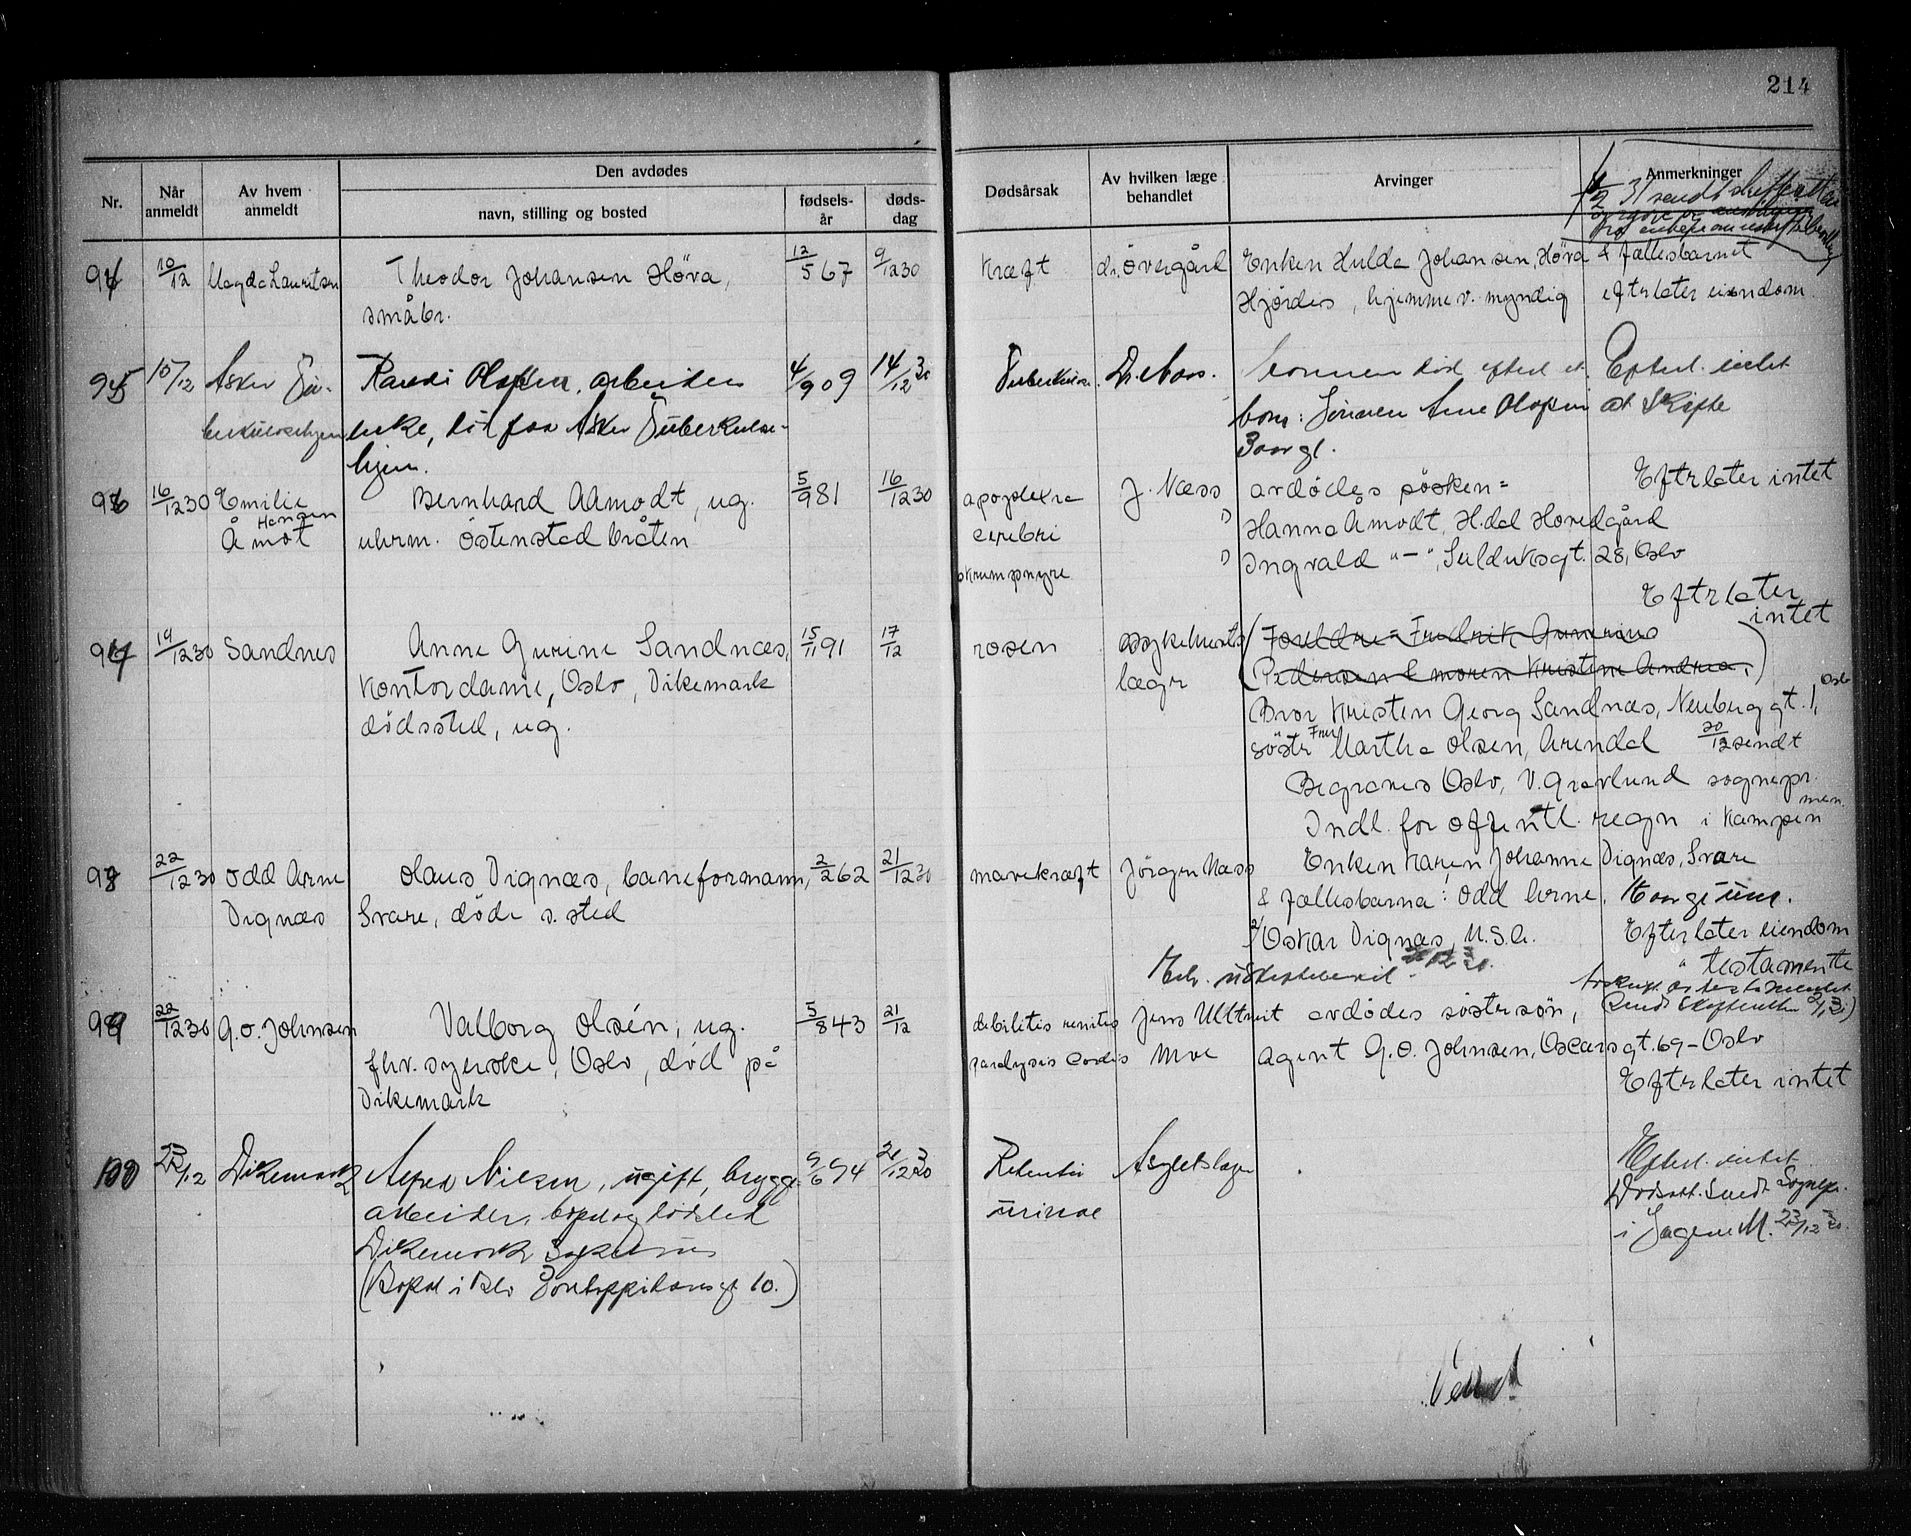 214
Den avdødes
Nr.
Når anmeldt
Av hvem anmeldt
navn, stilling og bosted
fødsels-år
døds-dag
Dødsårsak
Av hvilken læge behandlet
Arvinger
Anmerkninger
94 10/12 Magda Lauritsen Theodor Johansen Höva, 12/5 67 9/12 30 Kræft dr. Övergård Enken Hulda Johansen, Höva & fællesbarnet
småbr. Hjördis, hjemme v. myndig efterlater eiendom
95 15/12 Asker Tu- Randi Olsen, arbeiders 4/9 09 14/12 30 Tuberkulose. Dr. Næss. Efterl. intet
berkulosehjem ke, död paa Asker Tuberkulose- barn: Sönnen Arne Olsen at Skifte
hjem. 3 aar gl.
96 16/12 30 Emilie Bernhard Aamodt, ug. 5/9 81 16/12 30 apoplexia J. Næss avdödes sösken= Efterlater intet
Hansen
Åmot urm. Östenstad bråten cerebri Hanna Åmodt, H.dal Hovedgård
skrumpnyre Ingvald "—", 28, Oslo
Efterlater
intet
97 19/12 30 Sandnes Anne Gurine Sandnæs, 15/11 91 17/12 rosen sykehusets (Foreldre= Fredrik Gunerius
kontordame, Oslo, Dikemark læge (Pedersen & moren Kristine Andrea.)
dödssted, ug. Bror Kristen Georg Sandnæs, Neuberggt. 1, Oslo
söster Fru Martha Olsen, Arendal 20/12 sendt
Begraves Oslo, V. Gravlund sognepr.
Indl. for offentl. regn i Kampen men.
98 22/12 30 Odd Arne Olaus Dignæs, baneformann, 2/2 62 21/12 30 mavekræft Jörgen Næss Enken Karen Johanne Dignæs, Svare
Dignæs Svare, döde s. sted & fællesbarna: Odd Arne,
2/ Oskar Dignæs, U.S.A. Efterlater eiendom
" testamente
99 22/12 30 G.O. Johnsen Valborg Olsén, ug. 5/8 43 21/12 debilitis senilis Jens Ulltveit avdödes söstersön,
fhv. syerske, Oslo, död på paralysis cordis Moe agent G.O. Johnsen, Oscarsgt. 69 - Oslo
Dikemark Efterlater intet
100 23/12 Dikemark Alfred Nilsen, ugift, brygge- 9/6 94 21/12 30 Retentio Asylets læger Efterl. intet
arbeider, bopæl og dödssted urinae Dödsatt. sendt Sognepr.
Dikemark Sykehus i Jagene M. 23/12 30.
(Bopæl i Oslo 10.)